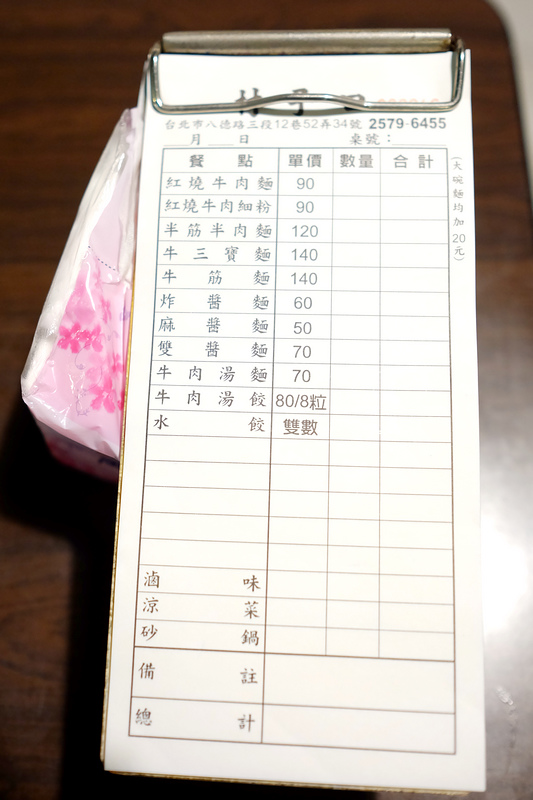 台北市八德路三段12巷52弄34號 2579-6455
月 日 桌號：
餐點 單價 數量 合計
紅燒牛肉麵 90
紅燒牛肉細粉 90
半筋半肉麵 120
牛三寶麵 140
牛筋麵 140
炸醬麵 60
麻醬麵 50
雙醬麵 70
牛肉湯麵 70
牛肉湯餃 80/8粒
水餃 雙數
滷味
涼菜
砂鍋
備註
總計
(大碗麵均加20元)